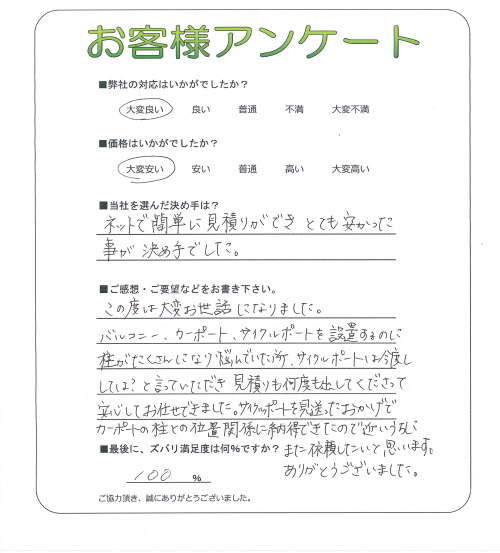 お客様アンケート
■弊社の対応はいかがでしたか？
大変良い 良い 普通 不満 大変不満
■価格はいかがでしたか？
大変安い 安い 普通 高い 大変高い
■当社を選んだ決め手は？
ネットで簡単に見積りができ とても安かった
事が決め手でした。
■ご感想・ご要望などをお書き下さい。
この度は大変お世話になりました。
バルコニー、カーポート、サイクルポートを設置するのに
柱がたくさんになり悩んでいた所、サイクルポートは今度に
しては？と言っていただき 見積りも何度も出してくださって
安心してお任せできました。サイクルポートを見送ったおかげで
カーポートの柱との位置関係に納得できたので近いうちに
■最後に、ズバリ満足度は何%ですか？
また依頼したいと思います。
ありがとうございました。
100 %
ご協力頂き、誠にありがとうございました。